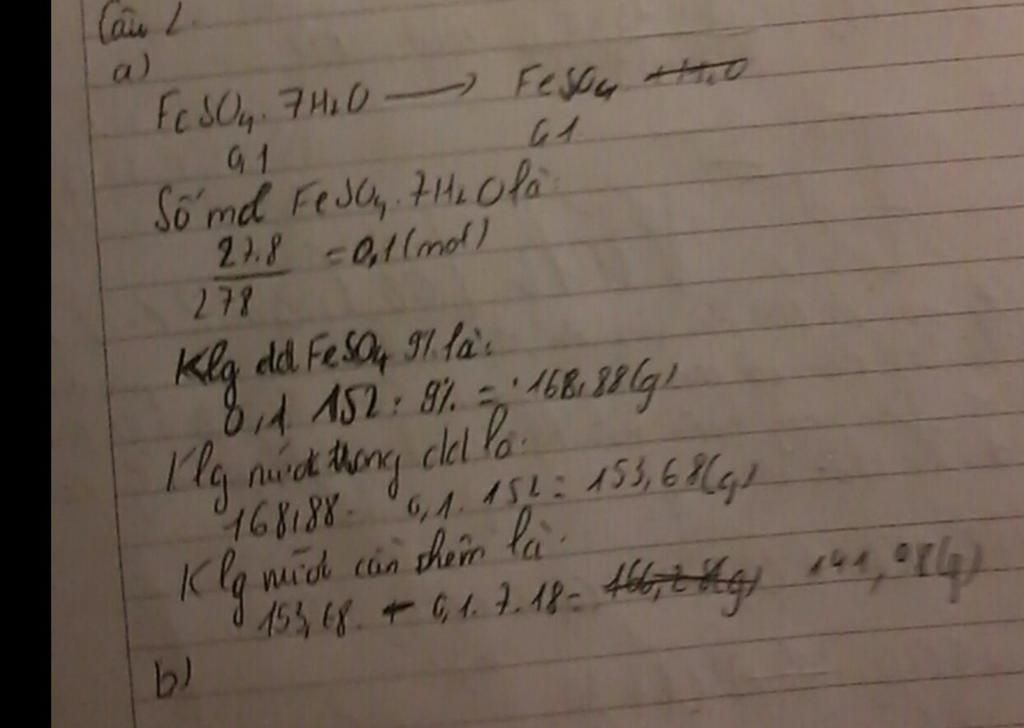 Câu 2
a)
FeSO4.7H2O → FeSO4 + H2O
0,1 0,1
Số mol FeSO4.7H2O là:
27.8 / 278 = 0,1 (mol)
Klg dd FeSO4 9% là:
0,1. 152 : 9% = 168,88(g)
Klg nước trong dd là:
168,88 - 0,1. 152 = 153,68(g)
Klg nước cần thêm là:
153,68 - 0,1. 7. 18 = 141,08(g)
b)